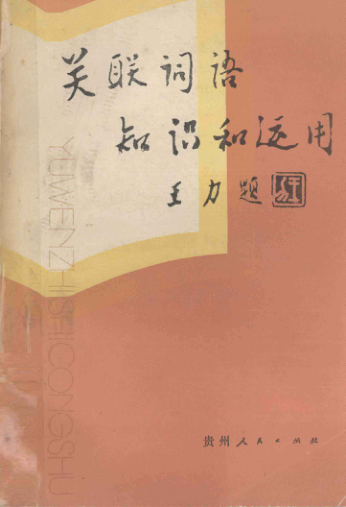 关联词语
知识和运用
王力题
YUWENZHISHICONGSHU
贵州人民出版社